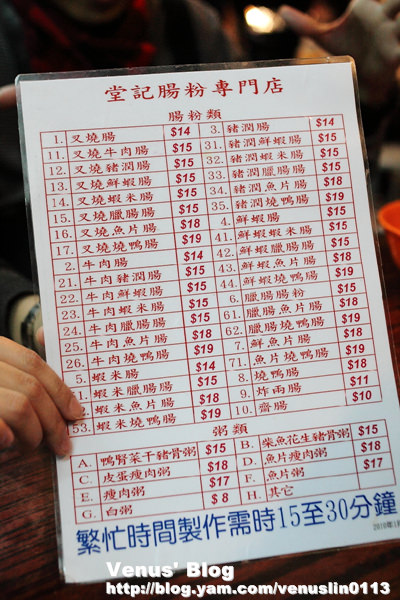 堂記腸粉專門店
腸粉類
1. 叉燒腸 $14
11. 叉燒牛肉腸 $15
12. 叉燒豬潤腸 $15
13. 叉燒鮮蝦腸 $15
14. 叉燒蝦米腸 $15
15. 叉燒臘腸腸 $15
16. 叉燒魚片腸 $18
17. 叉燒燒鴨腸 $19
2. 牛肉腸 $14
21. 牛肉豬潤腸 $15
22. 牛肉鮮蝦腸 $15
23. 牛肉蝦米腸 $15
24. 牛肉臘腸腸 $15
25. 牛肉魚片腸 $18
26. 牛肉燒鴨腸 $19
5. 蝦米腸 $14
1. 蝦米臘腸腸 $15
2. 蝦米魚片腸 $18
53. 蝦米燒鴨腸 $19
3. 豬潤腸 $14
31. 豬潤鮮蝦腸 $15
32. 豬潤蝦米腸 $15
33. 豬潤臘腸腸 $15
34. 豬潤魚片腸 $18
35. 豬潤燒鴨腸 $19
4. 鮮蝦腸
41. 鮮蝦蝦米腸 $15
42. 鮮蝦臘腸腸 $15
43. 鮮蝦魚片腸 $18
44. 鮮蝦燒鴨腸 $19
6. 臘腸腸粉
61. 臘腸魚片腸 $18
62. 臘腸燒鴨腸 $19
7. 鮮魚片腸 $18
71. 魚片燒鴨腸 $19
8. 燒鴨腸 $18
9. 炸兩腸 $11
10. 齋腸 $10
粥類
A. 鴨腎菜干豬骨粥 $15
B. 柴魚花生豬骨粥 $15
C. 皮蛋瘦肉粥 $18
D. 魚片瘦肉粥 $18
E. 瘦肉粥 $17
F. 魚片粥 $17
G. 白粥 $8
H. 其它
繁忙時間製作需時15至30分鐘
Venus' Blog
http://blog.yam.com/venuslin0113